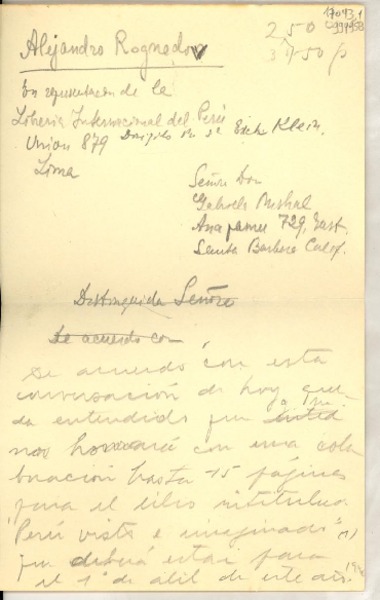 250
Alejandro Rognedov
3 450 p
En representación de la
Libreria Internacional del Perú
Union 879 Dirigido por sr Erich Klein.
Lima
Señora Don
Gabriela Mistral
Anapamu 729, East.
Santa Barbara Calif.
Distinguida Señora
De acuerdo con
De acuerdo con esta
conversación de hoy que-
da entendido que
nos honrará con una cola
boración hasta 15 páginas
para el libro intitulado
"Perú visto e imaginado"
que deberá estar para
el 1º de abril de este año.